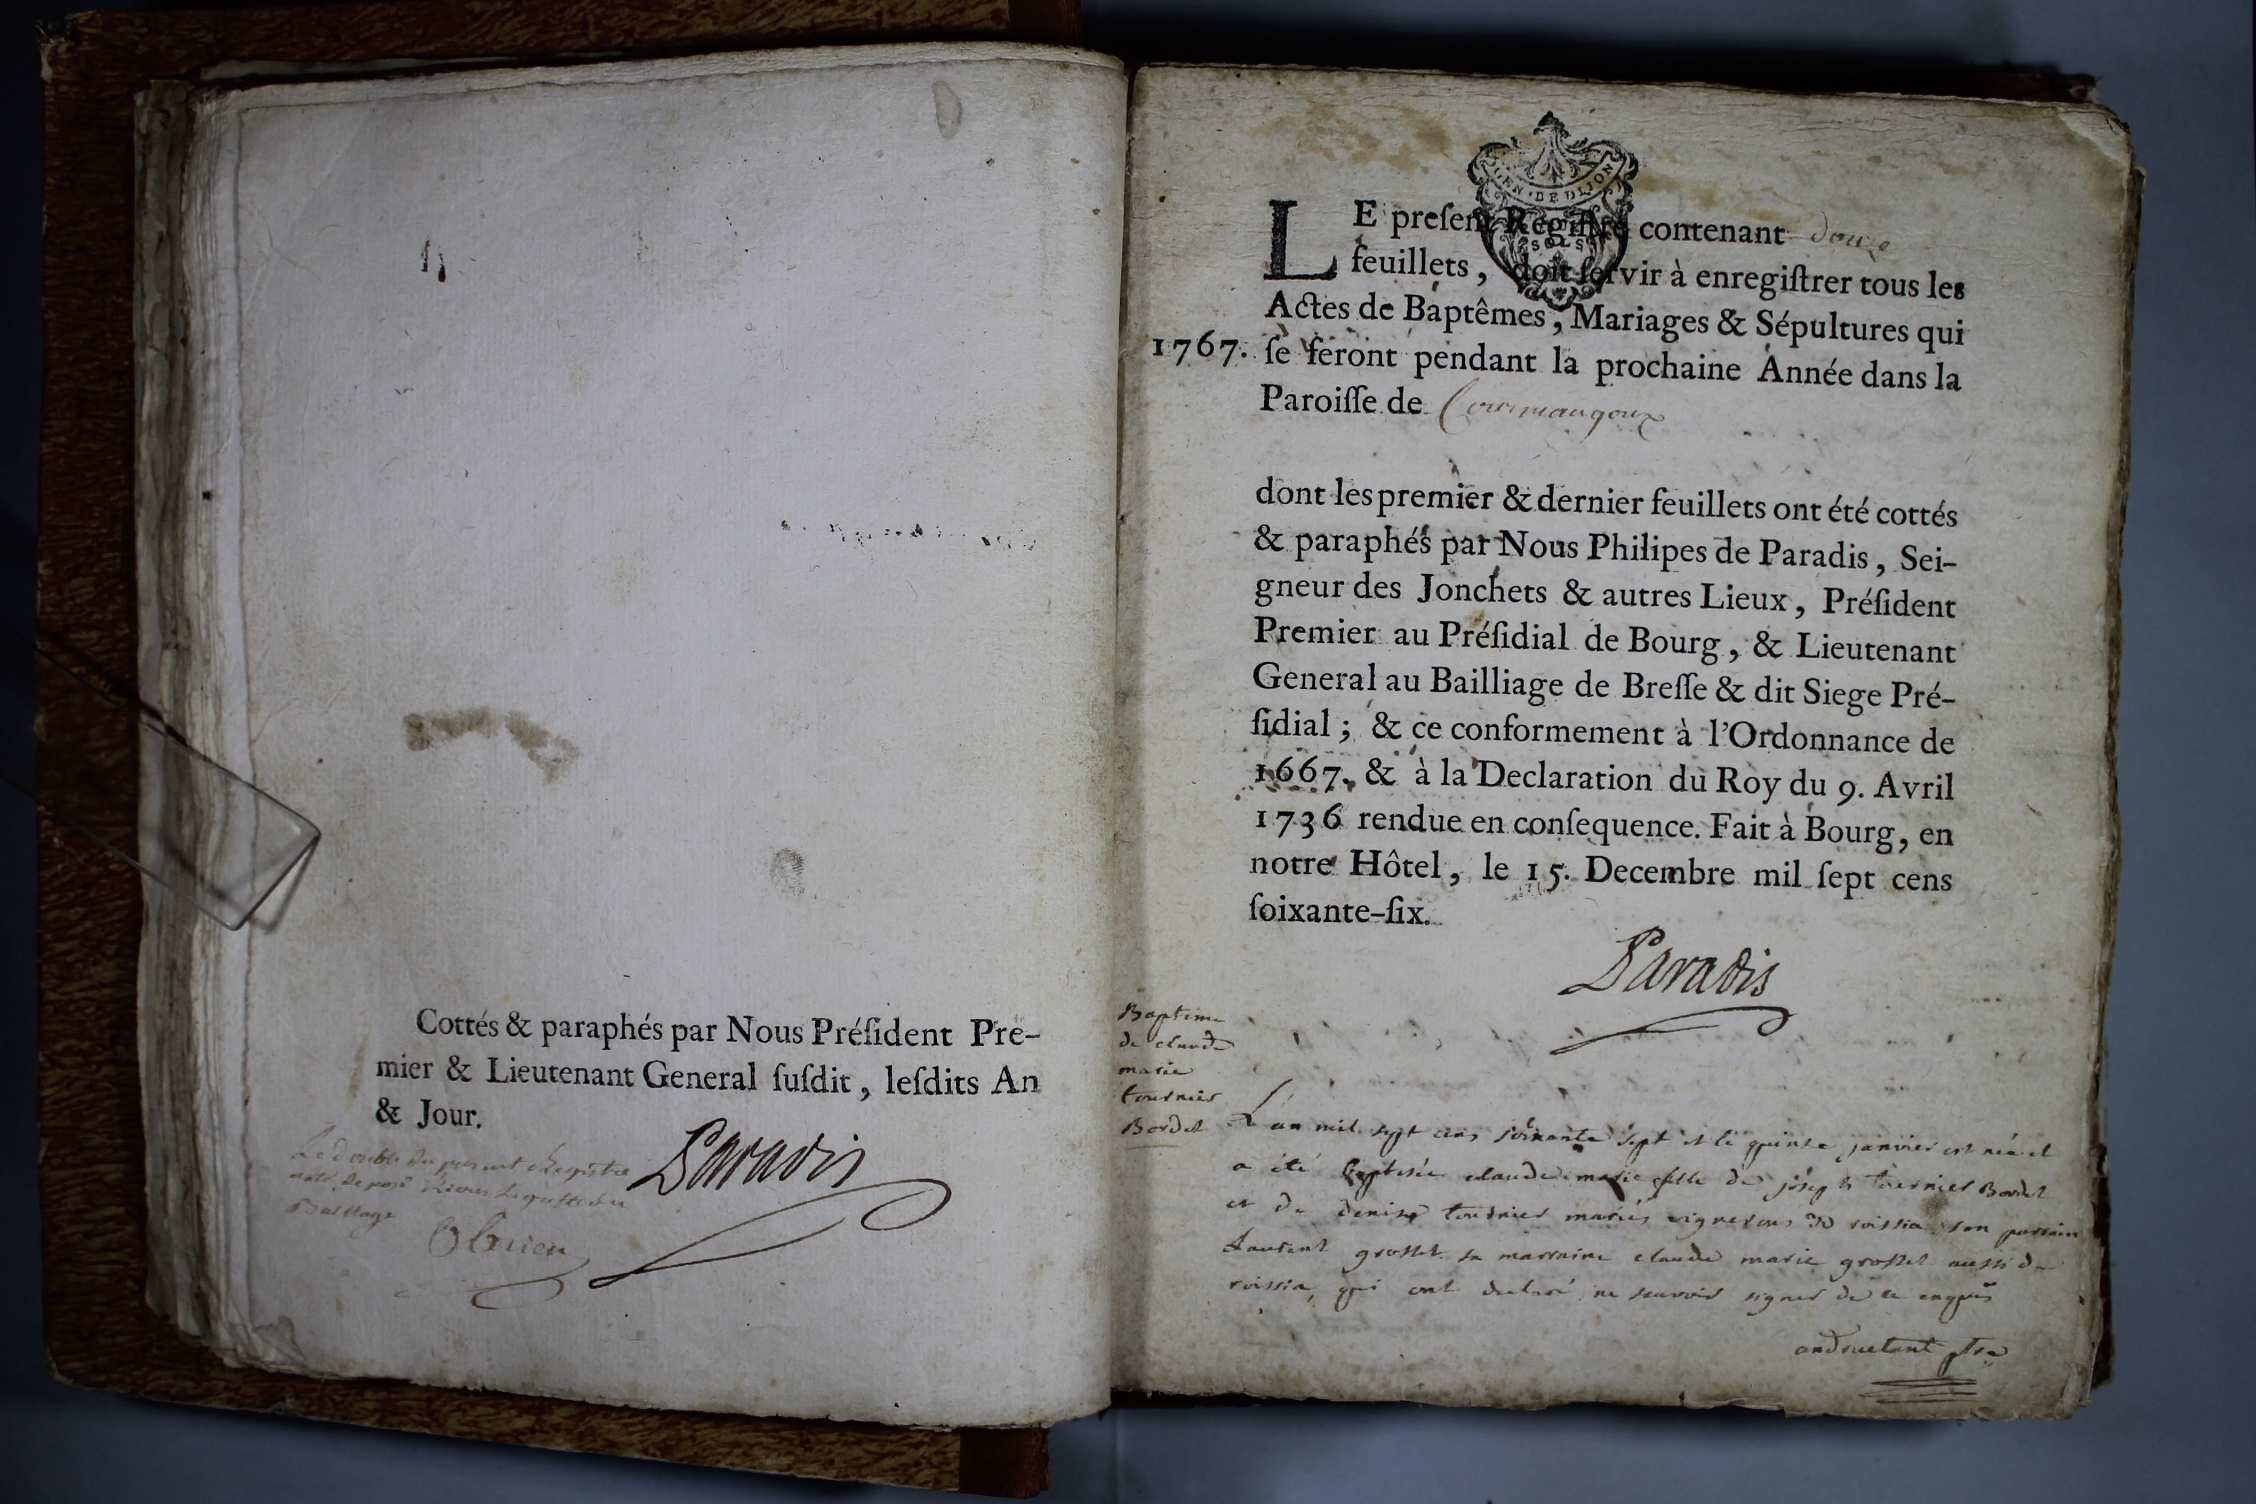 Cottés & paraphés par Nous Préſident Pre-
mier & Lieutenant General ſuſdit, leſdits An
& Jour.
Le double du present Registre
a été deposé
Bailliage
Paradis
GEN · DE DIJON
SOLS
LE preſent Regiſtre contenant douze
feuillets, doit ſervir à enregiſtrer tous les
Actes de Baptêmes, Mariages & Sépultures qui
1767. ſe feront pendant la prochaine Année dans la
Paroiſſe de Cormangoux
dont les premier & dernier feuillets ont été cottés
& paraphés par Nous Philipes de Paradis, Sei-
gneur des Jonchets & autres Lieux, Préſident
Premier au Préſidial de Bourg, & Lieutenant
General au Bailliage de Breſſe & dit Siege Pré-
ſidial; & ce conformement à l'Ordonnance de
1667. & à la Declaration du Roy du 9. Avril
1736 rendue en conſequence. Fait à Bourg, en
notre Hôtel, le 15. Decembre mil ſept cens
ſoixante-ſix.
Paradis
Baptime
de claude
marie
tournier
Bordet
L'an mil sept cens soixante sept et le quinze janvier est née et
a été baptisée claude marie fille de joseph tournier Bordet
et de denise tournier mariés vignerons de roissia son parrain
Laurent grosset sa marraine claude marie grosset aussi de
roissia, qui ont declaré ne scavoir signer de ce enquis
androuetant ptre